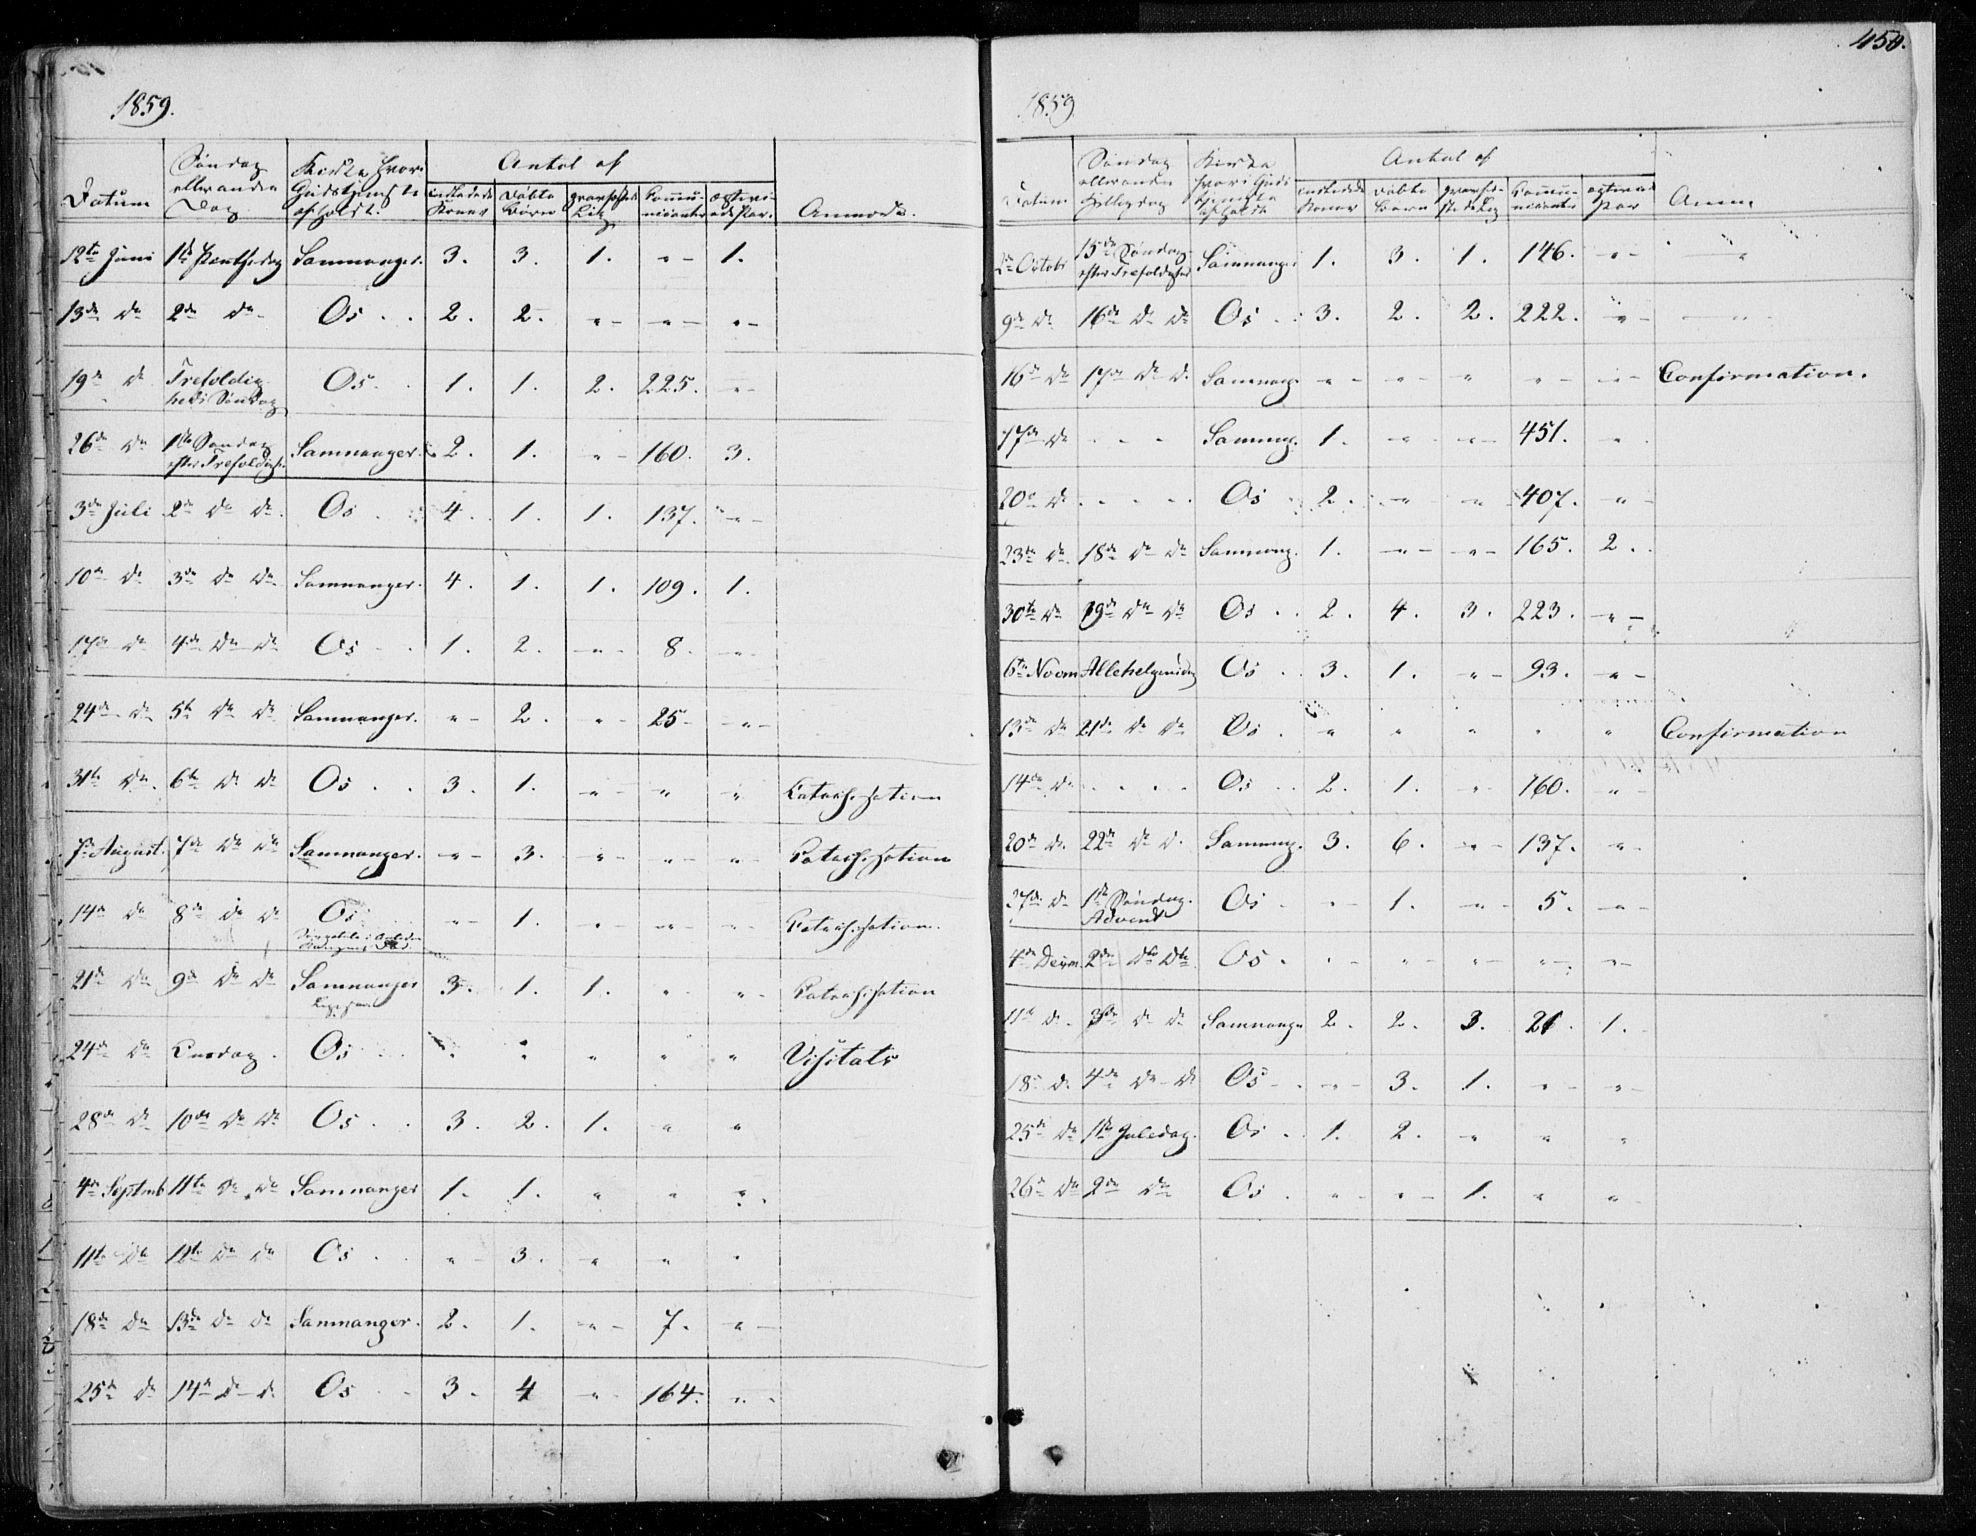 1859.
Datum | Søndag eller anden Dag | Kirke hvori Gudstjeneste afholdt. | Antal af | indledede Koner | Døbte Børn | Liig | Communicanter | Par. | Anmærk.
12te Juni | 1ste Pintsedag | Samnanger. | 3. | 3. | 1. | " - | 1.
13de do | 2den do | Os | 2. | 2. | " - | " - | " -
19de do | Trefoldigheds Søndag | Os | 1. | 1. | 2. | 225. | " -
26de do | 1ste Søndag efter Trefoldigh. | Samnanger. | 2. | 1. | " - | 160. | 3.
3die Juli | 2den do do | Os | 4. | 1. | 1. | 137. | " -
10de do | 3die do do | Samnanger. | 4. | 1. | 1. | 109. | 1.
17de do | 4de do do | Os | 1. | 2. | " - | 8. | " -
24de do | 5te do do | Samnanger. | " - | 2. | " - | 25 | " -
31te do | 6te do do | Os | 3. | 1. | " - | " | " | Catechisation
7de August. | 7de do do | Samnanger. | " - | 3. | " - | " - | " - | Catechisation
14de do | 8de do do | Os | " - | 1. | " - | " - | " - | Catechisation.
21de do | 9de do do | Samnanger | 3. | 1. | 1. | " | " - | Catechisation
24de do | Onsdag. | Os | " | " | " | " | " | Visitats
28de do | 10de do do | Os | 3. | 2. | 1. | " | "
4de Septmb | 11te do do | Samnanger | 1. | 1. | " | " | "
11te do | 12te do do | Os | " - | 3. | " | " | "
18de do | 13de do do | Samnanger. | 2. | 1. | " - | 7. | " -
25de do | 14de do do | Os | 3. | 4 | " - | 164. | " -
450.
1859.
Datum | Søndag eller anden Helligdag | Kirke hvori Gudstjeneste afholdt | Antal af | indledede Koner | Døbte Børn | Communicanter | Par | Anm
2den Octobr | 15de Søndag efter Trefoldighed | Samnanger | 1. | 3. | 1. | 146. | " - | "
9de do | 16de do do | Os | 3. | 2. | 2. | 222. | " - | "
16de do | 17de do do | Samnang. | " - | " - | " | " - | " - | Confirmation.
17de do | - - - | Samnng. | 1. | " - | " - | 451. | "
20de do | - - - | Os | 2. | " | " | 407. | " -
23de do | 18de do do | Samnang. | 1. | " - | " - | 165. | 2.
30te do | 19de do do | Os | 2. | 4. | 3. | 223. | " -
6te Novm | Allehelgensdag | Os | 3. | 1. | " - | 93. | " -
13de do | 21de do do | Os | " | " | " | " | " | Confirmation
14de do | - - - | Os | 2. | 1. | " | 160. | "
20de do | 22de do do | Samnng. | 3. | 6. | " - | 137. | " -
27de do | 1ste Søndag. Advent | Os | " - | 1. | " - | 5. | " -
4de Decm. | 2den do do | Os | " - | " - | " - | " - | " -
11te do | 3die do do | Samnange | 2. | 2. | 3. | 21. | 1.
18de do | 4de do do | Os | " - | 3. | 1. | " - | " -
25de do | 1ste Juledag. | Os | 1. | 2. | " | " | "
26de do | 2den do | Os | " - | " - | 1. | " | " -